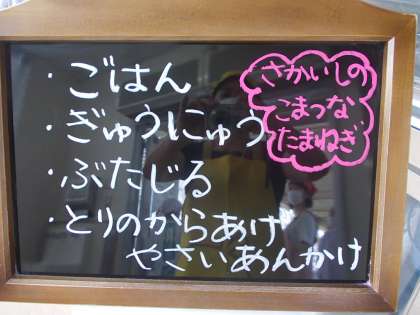 ・ごはん
・ぎゅうにゅう
・ぶたじる
・とりのからあげ
やさいあんかけ
さかいしの
こまつな
たまねぎ